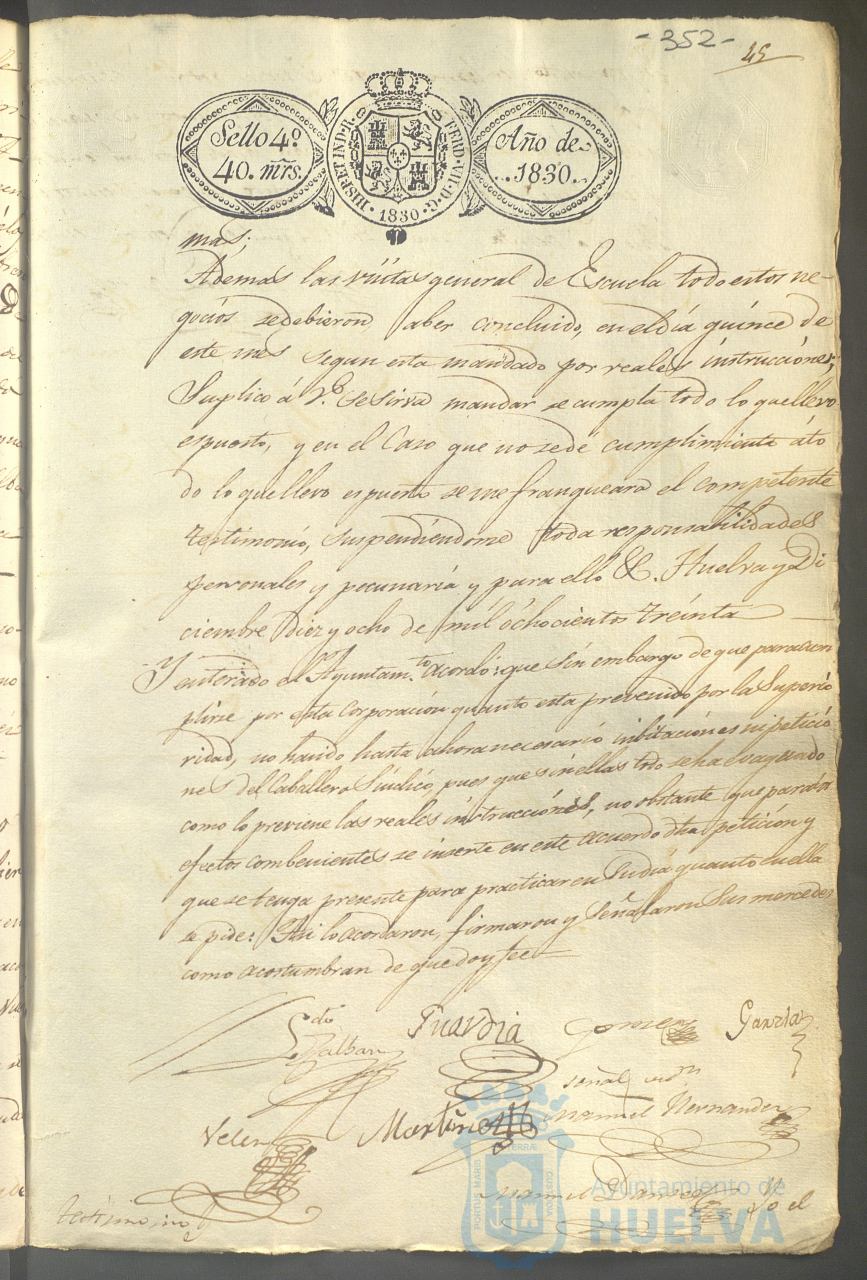 -352-
45
Sello 4º
40. mrs.
HISP. ET IND. R.
FERD. VII. D. G.
1830
Año de
1830.
mas;
Ademas las visitas general de Escuela todo estos ne-
gocios se debieron aber concluido, en el dia quince de
este mes segun esta mandado por reales instrucciónes;
Suplico á V.S. se sirva mandar se cumpla todo lo que llevo
espuesto, y en el Caso que no se dé cumplimiento áto
do lo que llevo espuesto se me franqueara el competente
testimonio, suspendiendome toda responsabilidades
personales y pecunaria y para ello &. Huelva y Di
ciembre Diez y ocho de mil ochocientos treinta
Y enterado el Ayuntam.to acordó: que sin embargo de que para cum
plirse por esta Corporación quanto esta prevenido por la Superio
ridad, no hansido hasta ahora necesario inbitaciones ni peticio
nes del Caballero Sindicó, pues que sin ellas todo se ha
como lo previene las reales instrucciónes, no obstante que para los
efectos combenientes se inserte en este acuerdo dha petición y
que se tenga presente para practicar en su dia quanto en ella
se pide: Asi lo acordaron, firmaron y señalaron sus mercedes
como acostumbran de que doy fee
Ldo
Guardia
Gomez
Garzia
señal
Velez
Martinez
Manuel Hernandez
Manuel
Yo el
testimonio
PORTUS MARIS
TERRAE
CUSTODIA
Ayuntamiento de
HUELVA